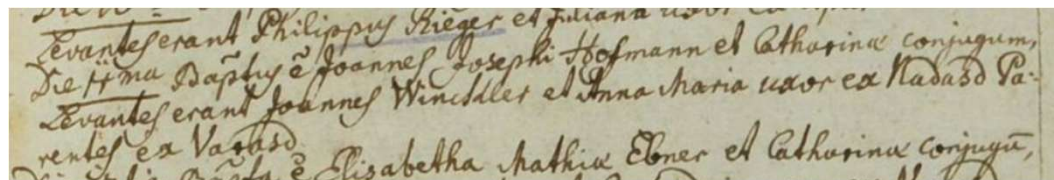 Levantes erant Philippus Rieger et Juliana uxor
Die 11ma Baptus ē Joannes Josephi Hofmann et Catharinæ conjugum,
Levantes erant Joannes Winckler et Anna Maria uxor ex Nadasd Pa-
rentes ex Varasd
Elisabetha Mathiæ Ebner et Catharinæ conjugū,